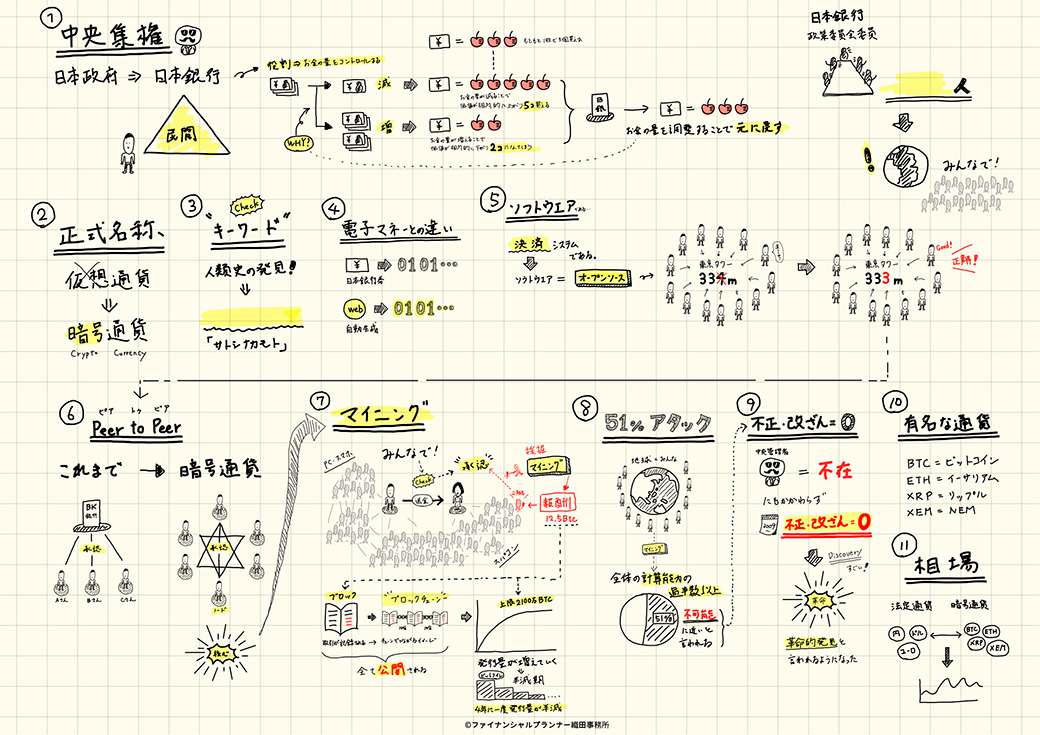 ①
中央集権
日本政府 ⇒ 日本銀行
民間
役割⇒お金の量をコントロールする
¥
減
増
WHY?
¥ =
¥ =
お金の量が減ることで
価値が相対的に上がり5コ買える
¥ =
お金の量が増えることで
価値が相対的に下がり2コになってしまう
日銀
¥ =
お金の量を調整することで元に戻す
日本銀行
政策委員会委員
人
みんなで!
②
正式名称、
仮想通貨
暗号通貨
Crypto Currency
③
Check
"キーワード"
人類史の発見!
「サトシナカモト」
④
電子マネーとの違い
¥ ⇒ 0101…
日本銀行券
web ⇒ 0101…
自動生成
⑤
ソフトウエアである…
決済システム
である。
ソフトウエア = オープンソース
東京タワー
334m
東京タワー
333m
Good!
正解!
⑥
ピア トゥ ピア
Peer to Peer
これまで → 暗号通貨
BK
銀行
承認
Aさん Bさん Cさん
承認
ノード
核心
⑦
マイニング
PC・スマホ
みんなで!
Check
送金
承認
マイニング
報酬
12.5BTC
ブロック
ブロックチェーン
取引が記録される → チェーンでつながるイメージ
全て公開される
上限2100万BTC
発行量が増えていく
半減期
4年に一度発行量が半減
⑧
51%アタック
地球=みんな
マイニング
全体の計算能力の
過半数以上
51%
不可能
に近いと
言われる
⑨
不正・改ざん=0
中央管理者
= 不在
にもかかわらず
2009
不正・改ざん=0
Discovery
すごい!
革命
革命的発見と
言われるようになった
⑩
有名な通貨
BTC = ビットコイン
ETH = イーサリアム
XRP = リップル
XEM = NEM
⑪
相場
法定通貨 暗号通貨
円 ドル
ユーロ
BTC ETH
XRP XEM
©ファイナンシャルプランナー織田事務所